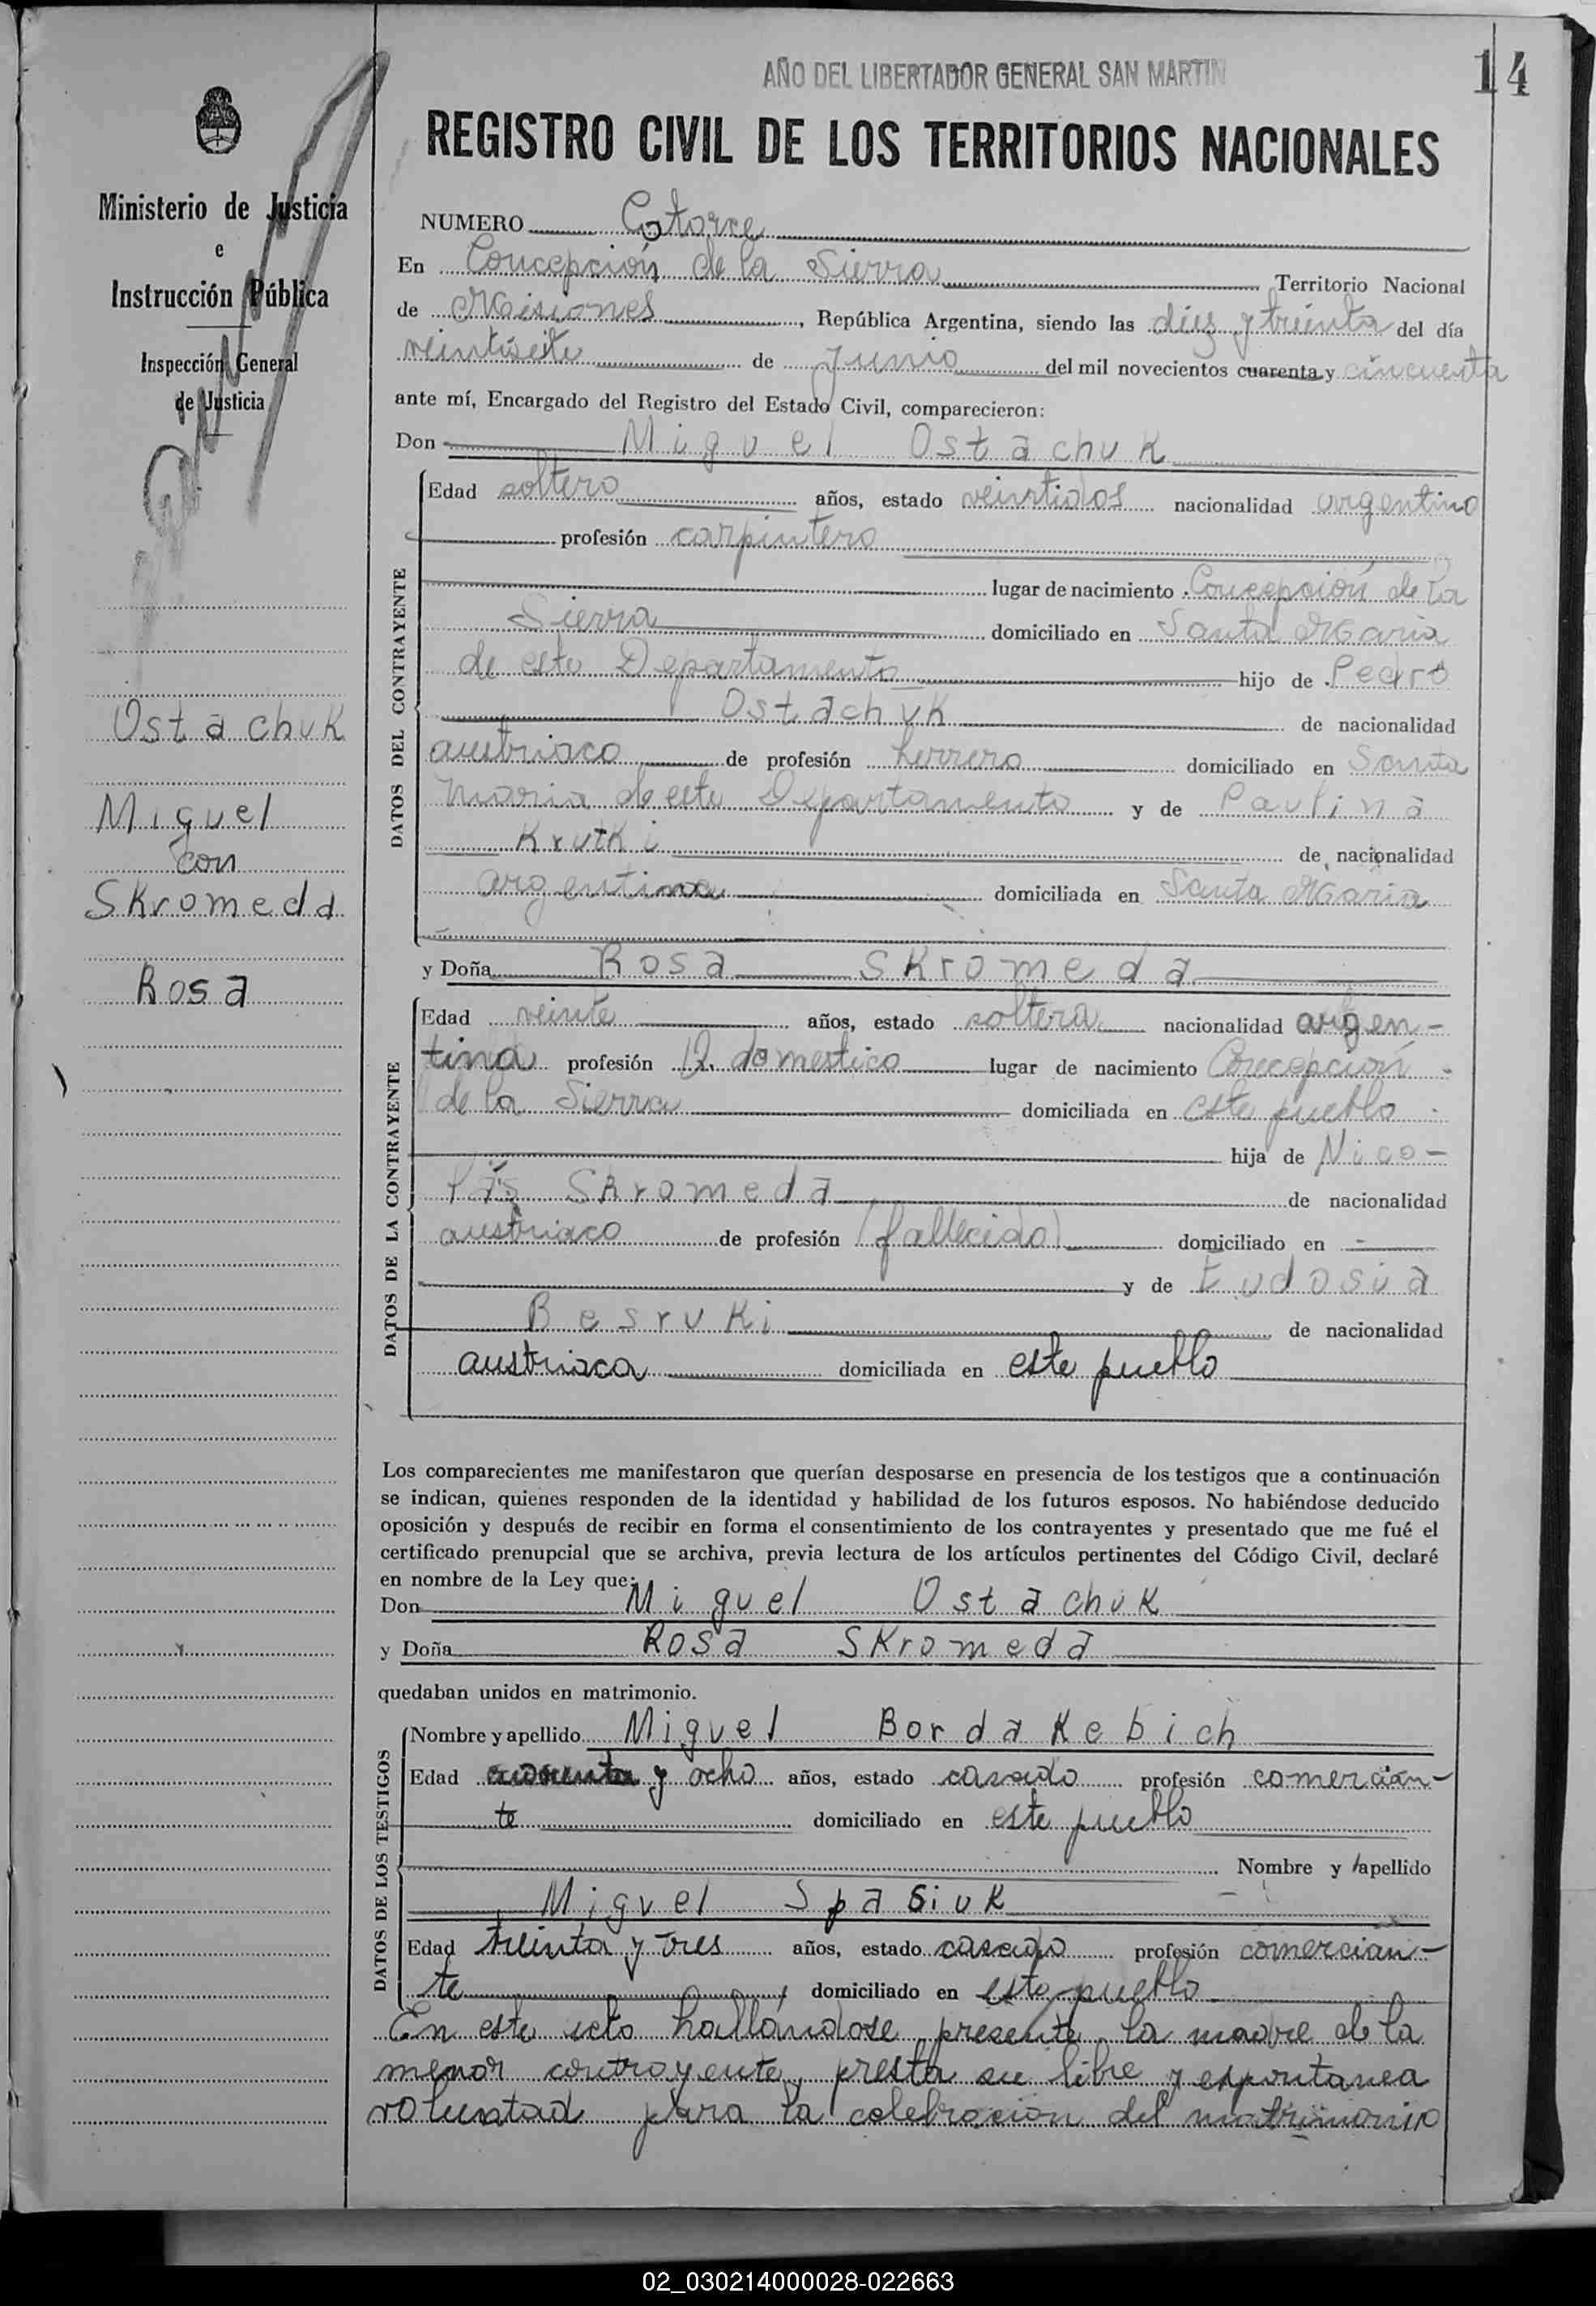 AÑO DEL LIBERTADOR GENERAL SAN MARTIN
14
REGISTRO CIVIL DE LOS TERRITORIOS NACIONALES
Ministerio de Justicia
e
Instrucción Pública
Inspección General
de Justicia
Ostachuk
Miguel
con
Skromeda
Rosa
NUMERO Catorce
En Concepción de la Sierra Territorio Nacional
de Misiones, República Argentina, siendo las diez y treinta del día
veintisiete de Junio del mil novecientos cuarenta y cincuenta
ante mí, Encargado del Registro del Estado Civil, comparecieron:
Don Miguel Ostachuk
DATOS DEL CONTRAYENTE
Edad soltero años, estado veintidos nacionalidad argentino
profesión carpintero
lugar de nacimiento Concepción de la
Sierra domiciliado en Santa Maria
de este Departamento hijo de Pedro
Ostachuk de nacionalidad
austriaco de profesión herrero domiciliado en Santa
Maria de este Departamento y de Paulina
Krutki de nacionalidad
argentina domiciliada en Santa Maria
y Doña Rosa Skromeda
DATOS DE LA CONTRAYENTE
Edad veinte años, estado soltera nacionalidad argen-
tina profesión Q. domestico lugar de nacimiento Concepción
de la Sierra domiciliada en este pueblo
hija de Nico-
lás Skromeda de nacionalidad
austriaco de profesión (fallecido) domiciliado en -
y de Eudosia
Besruki de nacionalidad
austriaca domiciliada en este pueblo
Los comparecientes me manifestaron que querían desposarse en presencia de los testigos que a continuación
se indican, quienes responden de la identidad y habilidad de los futuros esposos. No habiéndose deducido
oposición y después de recibir en forma el consentimiento de los contrayentes y presentado que me fué el
certificado prenupcial que se archiva, previa lectura de los artículos pertinentes del Código Civil, declaré
en nombre de la Ley que:
Don Miguel Ostachuk
y Doña Rosa Skromeda
quedaban unidos en matrimonio.
DATOS DE LOS TESTIGOS
Nombre y apellido Miguel Bordakebich
Edad cuarenta y ocho años, estado casado profesión comercian-
te domiciliado en este pueblo
Nombre y apellido
Miguel Spasiuk
Edad treinta y tres años, estado casado profesión comercian-
te domiciliado en este pueblo
En este acto hallándose presente la madre de la
menor contrayente, presta su libre y espontanea
voluntad para la celebración del matrimonio
02_030214000028-022663